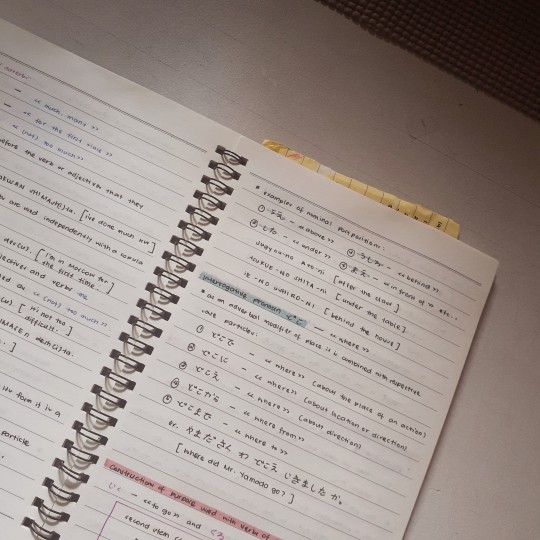 adverbs:
— « much, many »
— « for the first time »
« (not) too much »
before the verb or adjective that they
[i've done much not]
are used independently with a copula
desu. [i'm in Moscow for the first time.]
adjectives and verbs are
as « (not) too much »
[it's not too difficult.]
its form it is a
particle
* examples of nominal postposition:
① うえ - « above » ③ うしろ - « behind »
② した - « under » ④ まえ - « in front of » etc..
JUGYOO-NO ATO-NI [after the class]
TSUKUE-NO SHITA-NI [under the table]
IE-NO USHIRO-NI [behind the house]
interrogative pronoun どこ — « where »
* as an adverbial modifier of place it is combined with respective
case particles:
① どこで - « where » (about the place of an action)
② どこに - « where » (about location or direction)
③ どこえ - « where » (about direction)
④ どこから - « where from »
⑤ どこまで - « where to »
ex. やまださん わ どこえ いきました か。
[where did Mr. Yamada go?]
construction of purpose used with verbs of
いく - « to go » and くる
second stem